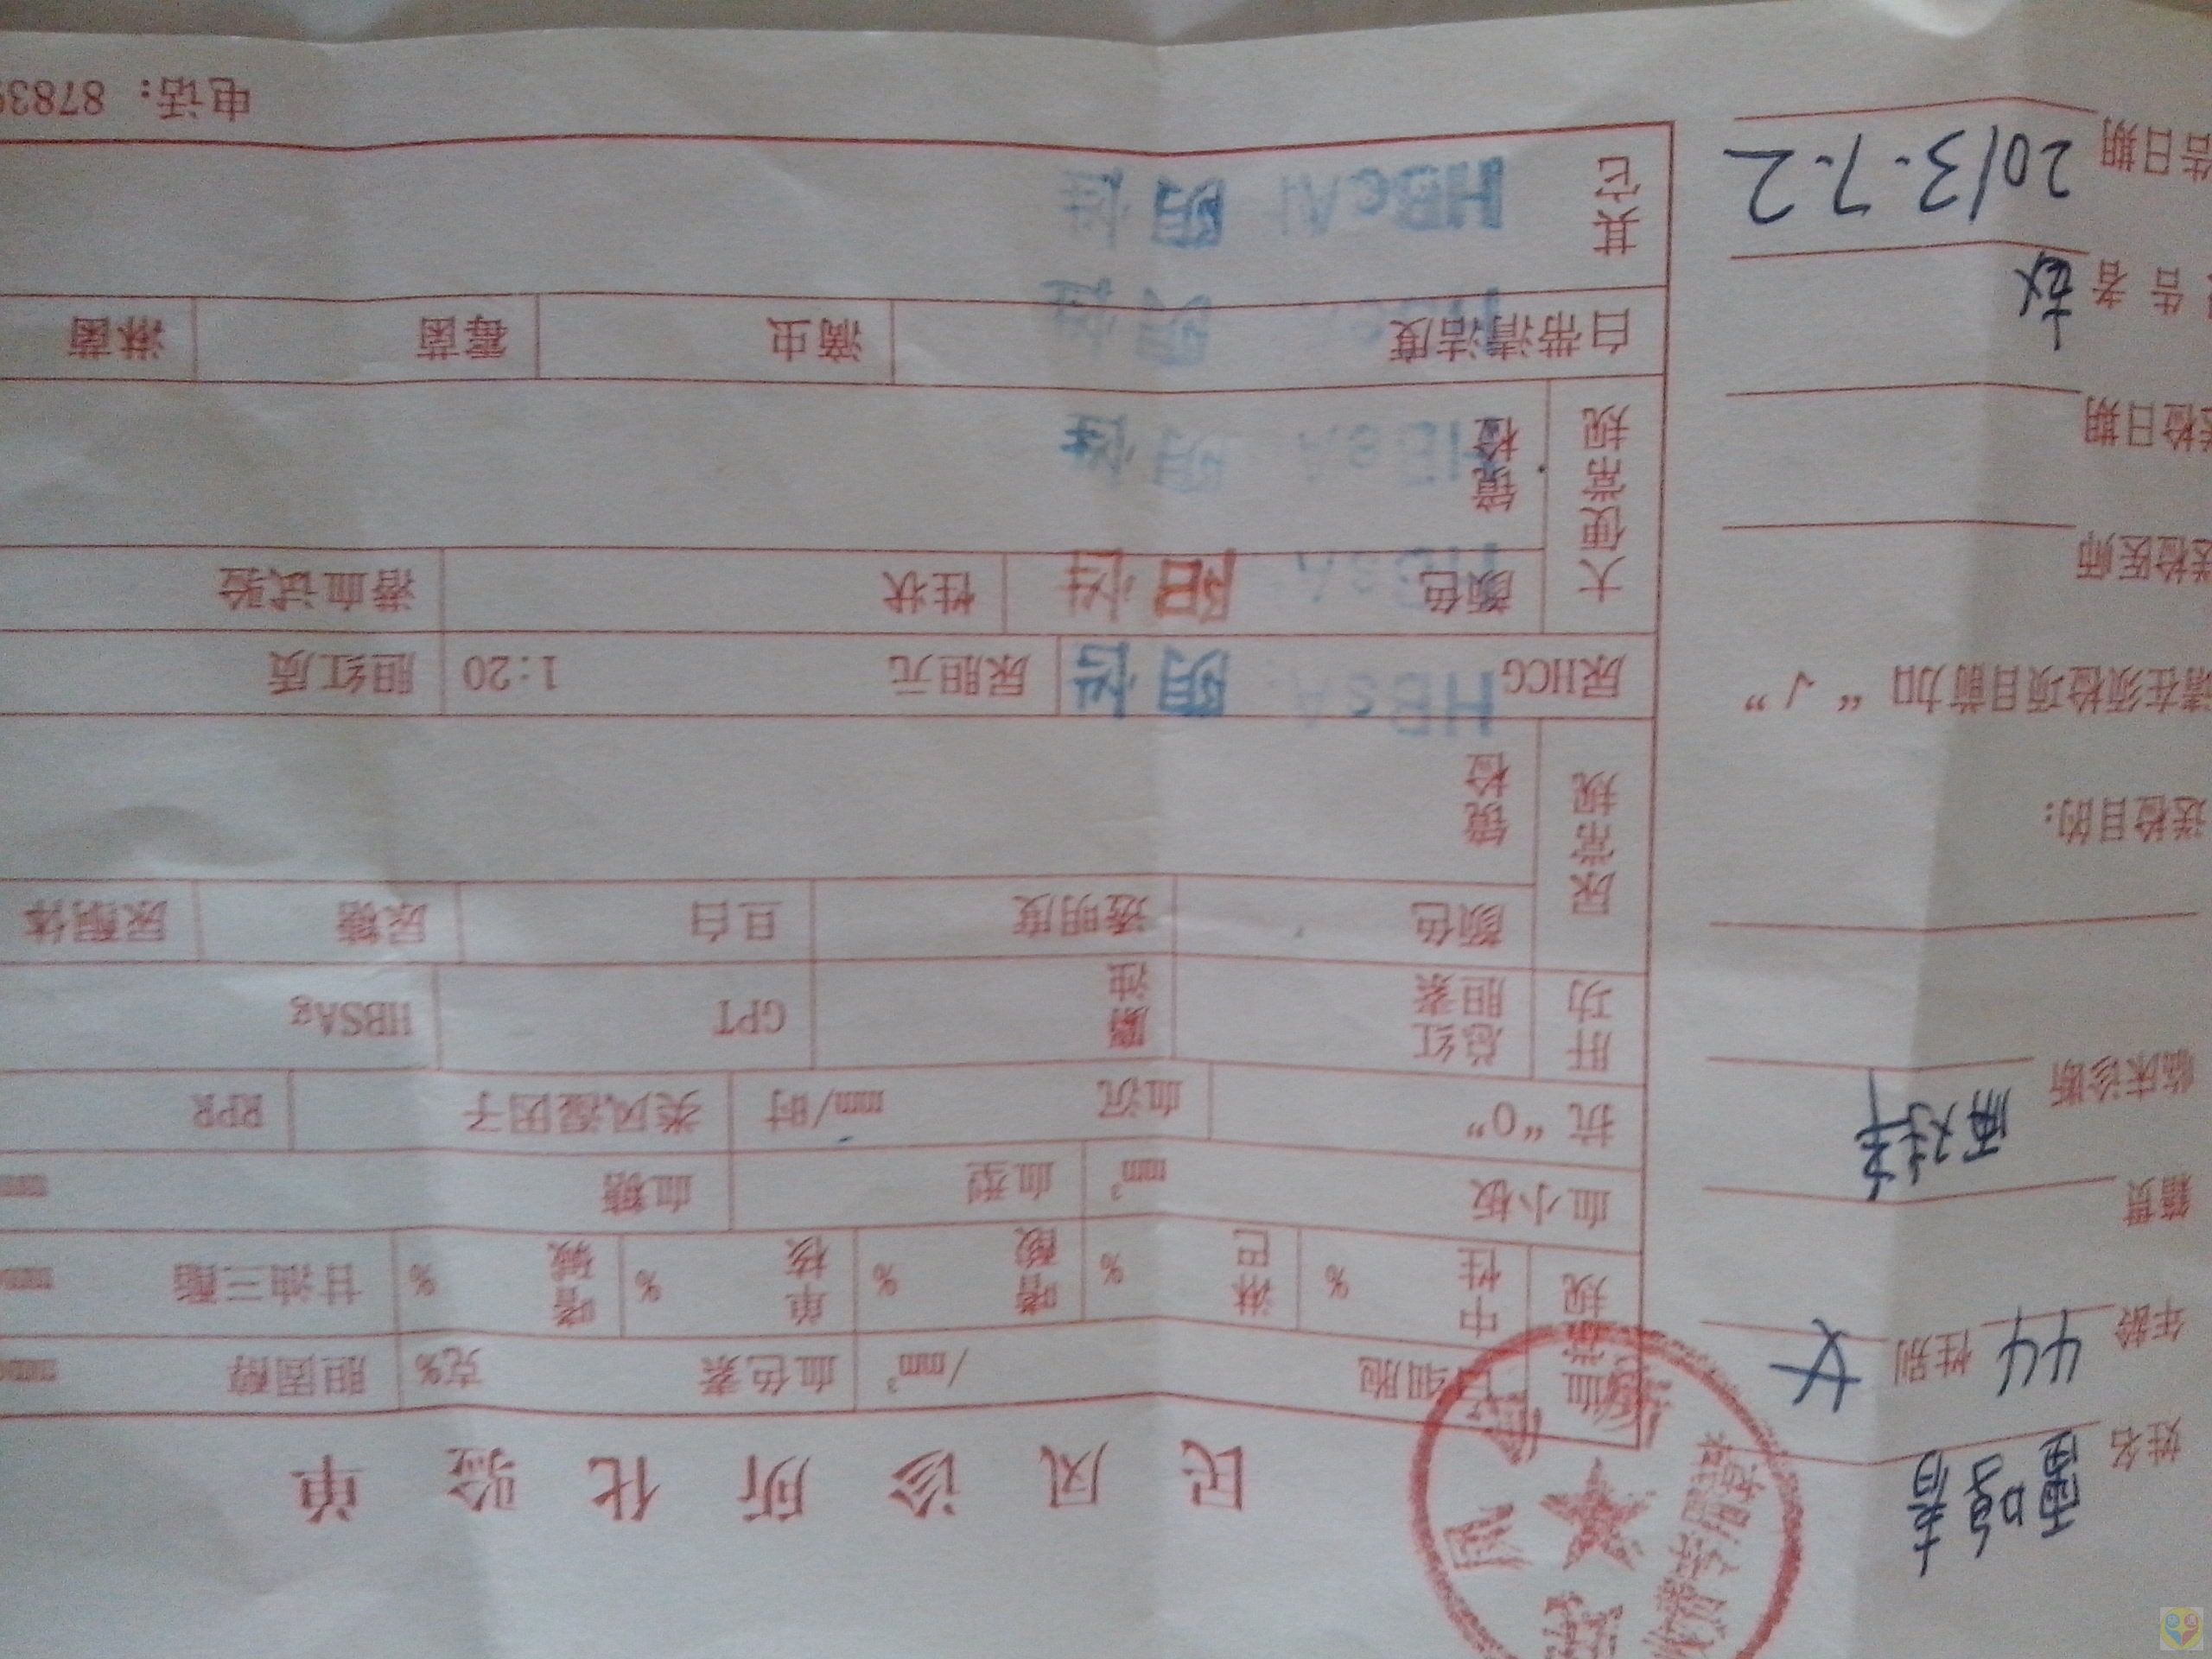 民风诊所化验单
姓名
年龄 44 性别 女
籍贯
临床诊断
送检目的:
请在须检项目前加“√”
送检医师
送检日期
告者 敖
告日期 2013.7.2
血常规
白细胞 /mm³ 血色素 克% 胆固醇
中性 % 淋巴 % 嗜酸 % 单核 % 嗜碱 % 甘油三酯
血小板 mm³ 血型 血糖
抗“O” 血沉 mm/时 类风湿因子 RPR
肝功 总红胆素 麝浊 GPT HBSAg
尿常规 颜色 透明度 旦白 尿糖 尿酮体
镜检
尿HCG 尿胆元 1:20 胆红质
HBsA 阴性
大便常规 颜色 性状 潜血试验
阳性
镜检
阴性
白带清洁度 滴虫 霉菌 淋菌
阴性
其它
HBcAb 阴性
电话: 8783